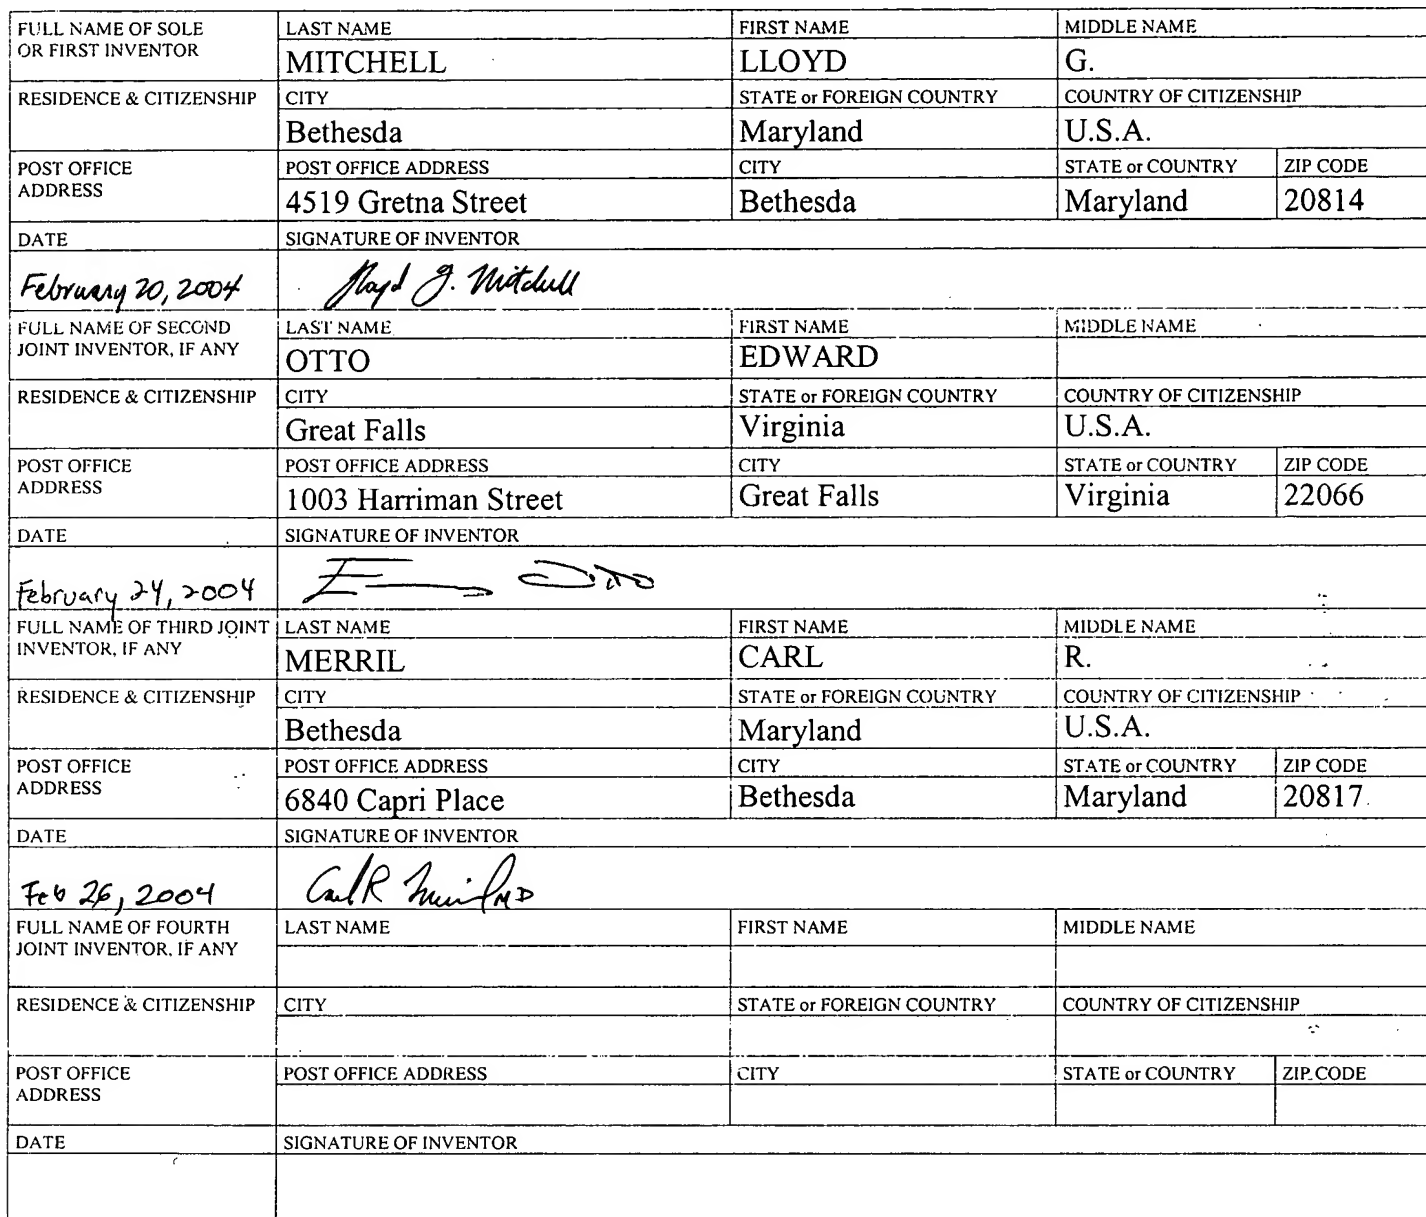 FULL NAME OF SOLE OR FIRST INVENTOR LAST NAME FIRST NAME MIDDLE NAME
MITCHELL LLOYD G.
RESIDENCE & CITIZENSHIP CITY STATE or FOREIGN COUNTRY COUNTRY OF CITIZENSHIP
Bethesda Maryland U.S.A.
POST OFFICE ADDRESS POST OFFICE ADDRESS CITY STATE or COUNTRY ZIP CODE
4519 Gretna Street Bethesda Maryland 20814
DATE SIGNATURE OF INVENTOR
February 20, 2004 Lloyd G. Mitchell
FULL NAME OF SECOND JOINT INVENTOR, IF ANY LAST NAME FIRST NAME MIDDLE NAME
OTTO EDWARD
RESIDENCE & CITIZENSHIP CITY STATE or FOREIGN COUNTRY COUNTRY OF CITIZENSHIP
Great Falls Virginia U.S.A.
POST OFFICE ADDRESS POST OFFICE ADDRESS CITY STATE or COUNTRY ZIP CODE
1003 Harriman Street Great Falls Virginia 22066
DATE SIGNATURE OF INVENTOR
February 24, 2004 Otto
FULL NAME OF THIRD JOINT INVENTOR, IF ANY LAST NAME FIRST NAME MIDDLE NAME
MERRIL CARL R.
RESIDENCE & CITIZENSHIP CITY STATE or FOREIGN COUNTRY COUNTRY OF CITIZENSHIP
Bethesda Maryland U.S.A.
POST OFFICE ADDRESS POST OFFICE ADDRESS CITY STATE or COUNTRY ZIP CODE
6840 Capri Place Bethesda Maryland 20817
DATE SIGNATURE OF INVENTOR
Feb 26, 2004 Carl R Merril MD
FULL NAME OF FOURTH JOINT INVENTOR, IF ANY LAST NAME FIRST NAME MIDDLE NAME
RESIDENCE & CITIZENSHIP CITY STATE or FOREIGN COUNTRY COUNTRY OF CITIZENSHIP
POST OFFICE ADDRESS POST OFFICE ADDRESS CITY STATE or COUNTRY ZIP CODE
DATE SIGNATURE OF INVENTOR